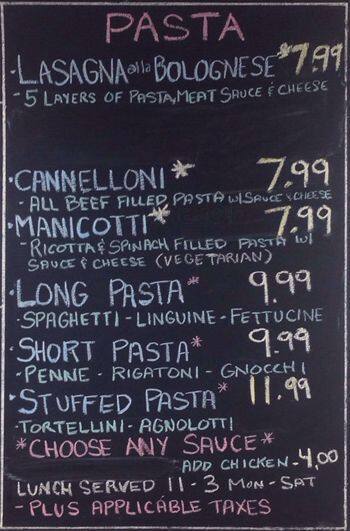 PASTA
-LASAGNA alla BOLOGNESE $7.99
-5 LAYERS OF PASTA, MEAT SAUCE & CHEESE
·CANNELLONI* 7.99
-ALL BEEF FILLED PASTA W/SAUCE & CHEESE
·MANICOTTI* 7.99
-RICOTTA & SPINACH FILLED PASTA W/
SAUCE & CHEESE (VEGETARIAN)
·LONG PASTA* 9.99
-SPAGHETTI-LINGUINE-FETTUCINE
·SHORT PASTA* 9.99
-PENNE-RIGATONI-GNOCCHI
·STUFFED PASTA* 11.99
-TORTELLINI-AGNOLOTTI
*CHOOSE ANY SAUCE*
ADD CHICKEN-4,00
LUNCH SERVED 11-3 MON-SAT
-PLUS APPLICABLE TAXES